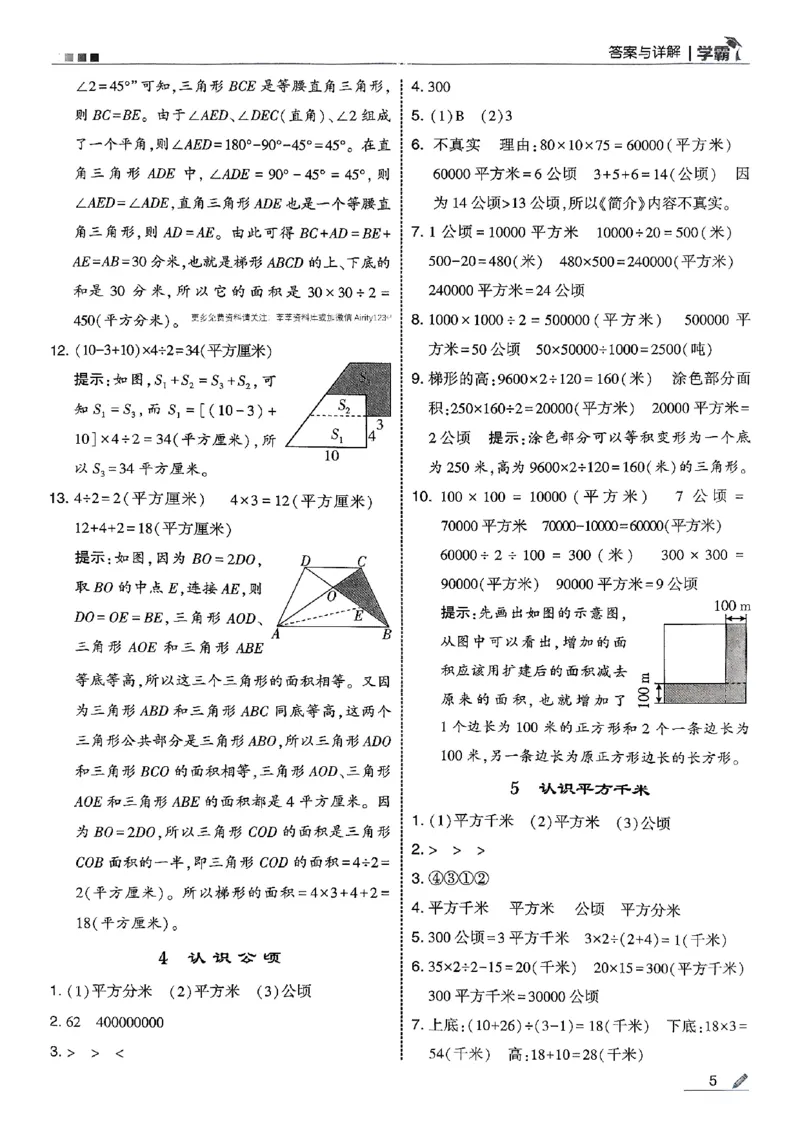 答案与详解 学霸
∠2=45°”可知,三角形 BCE 是等腰直角三角形,
则 BC=BE。由于∠AED、∠DEC(直角)、∠2 组成
了一个平角,则∠AED=180°-90°-45°=45°。在直
角三角形 ADE 中, ∠ADE = 90° - 45° = 45°, 则
∠AED=∠ADE,直角三角形 ADE 也是一个等腰直
角三角形,则 AD=AE。由此可得 BC+AD=BE+
AE=AB=30 分米,也就是梯形 ABCD 的上、下底的
和是 30 分米, 所以它的面积是 30×30÷2=
450(平方分米)。 更多免费资料请关注:苹苹资料库或加微信 Airity123
12. (10-3+10)×4÷2=34(平方厘米)
提示:如图,S₁+S₂=S₃+S₂,可
知 S₁=S₃,而 S₁=[(10-3)+
10]×4÷2=34(平方厘米),所
以 S₃=34 平方厘米。
S₃
S₂
S₁
3
4
10
13. 4÷2=2(平方厘米) 4×3=12(平方厘米)
12+4+2=18(平方厘米)
提示:如图,因为 BO=2DO,
取 BO 的中点 E,连接 AE,则
DO=OE=BE,三角形 AOD、
三角形 AOE 和三角形 ABE
D C
O
E
A B
等底等高,所以这三个三角形的面积相等。又因
为三角形 ABD 和三角形 ABC 同底等高,这两个
三角形公共部分是三角形 ABO,所以三角形 ADO
和三角形 BCO 的面积相等,三角形 AOD、三角形
AOE 和三角形 ABE 的面积都是 4 平方厘米。因
为 BO=2DO,所以三角形 COD 的面积是三角形
COB 面积的一半,即三角形 COD 的面积=4÷2=
2(平方厘米)。所以梯形的面积=4×3+4+2=
18(平方厘米)。
4 认识公顷
1. (1)平方分米 (2)平方米 (3)公顷
2. 62 400000000
3. > > <
4. 300
5. (1)B (2)3
6. 不真实 理由:80×10×75=60000(平方米)
60000 平方米=6 公顷 3+5+6=14(公顷) 因
为 14 公顷>13 公顷,所以《简介》内容不真实。
7. 1 公顷=10000 平方米 10000÷20=500(米)
500-20=480(米) 480×500=240000(平方米)
240000 平方米=24 公顷
8. 1000×1000÷2=500000(平方米) 500000 平
方米=50 公顷 50×50000÷1000=2500(吨)
9. 梯形的高:9600×2÷120=160(米) 涂色部分面
积:250×160÷2=20000(平方米) 20000 平方米=
2 公顷 提示:涂色部分可以等积变形为一个底
为 250 米,高为 9600×2÷120=160(米)的三角形。
10. 100 × 100 = 10000 (平方米) 7 公顷 =
70000 平方米 70000-10000=60000(平方米)
60000÷2÷100=300(米) 300×300=
90000(平方米) 90000 平方米=9 公顷
提示:先画出如图的示意图,
从图中可以看出,增加的面
积应该用扩建后的面积减去
原来的面积,也就增加了
100 m
100 m
1 个边长为 100 米的正方形和 2 个一条边长为
100 米,另一条边长为原正方形边长的长方形。
5 认识平方千米
1. (1)平方千米 (2)平方米 (3)公顷
2. > > >
3. ④③①②
4. 平方千米 平方米 公顷 平方分米
5. 300 公顷=3 平方千米 3×2÷(2+4)=1(千米)
6. 35×2÷2-15=20(千米) 20×15=300(平方千米)
300 平方千米=30000 公顷
7. 上底:(10+26)÷(3-1)=18(千米) 下底:18×3=
54(千米) 高:18+10=28(千米)
5